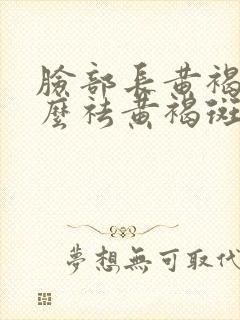 臉部長黃褐
麼祛黃褐斑
夢想無可取代